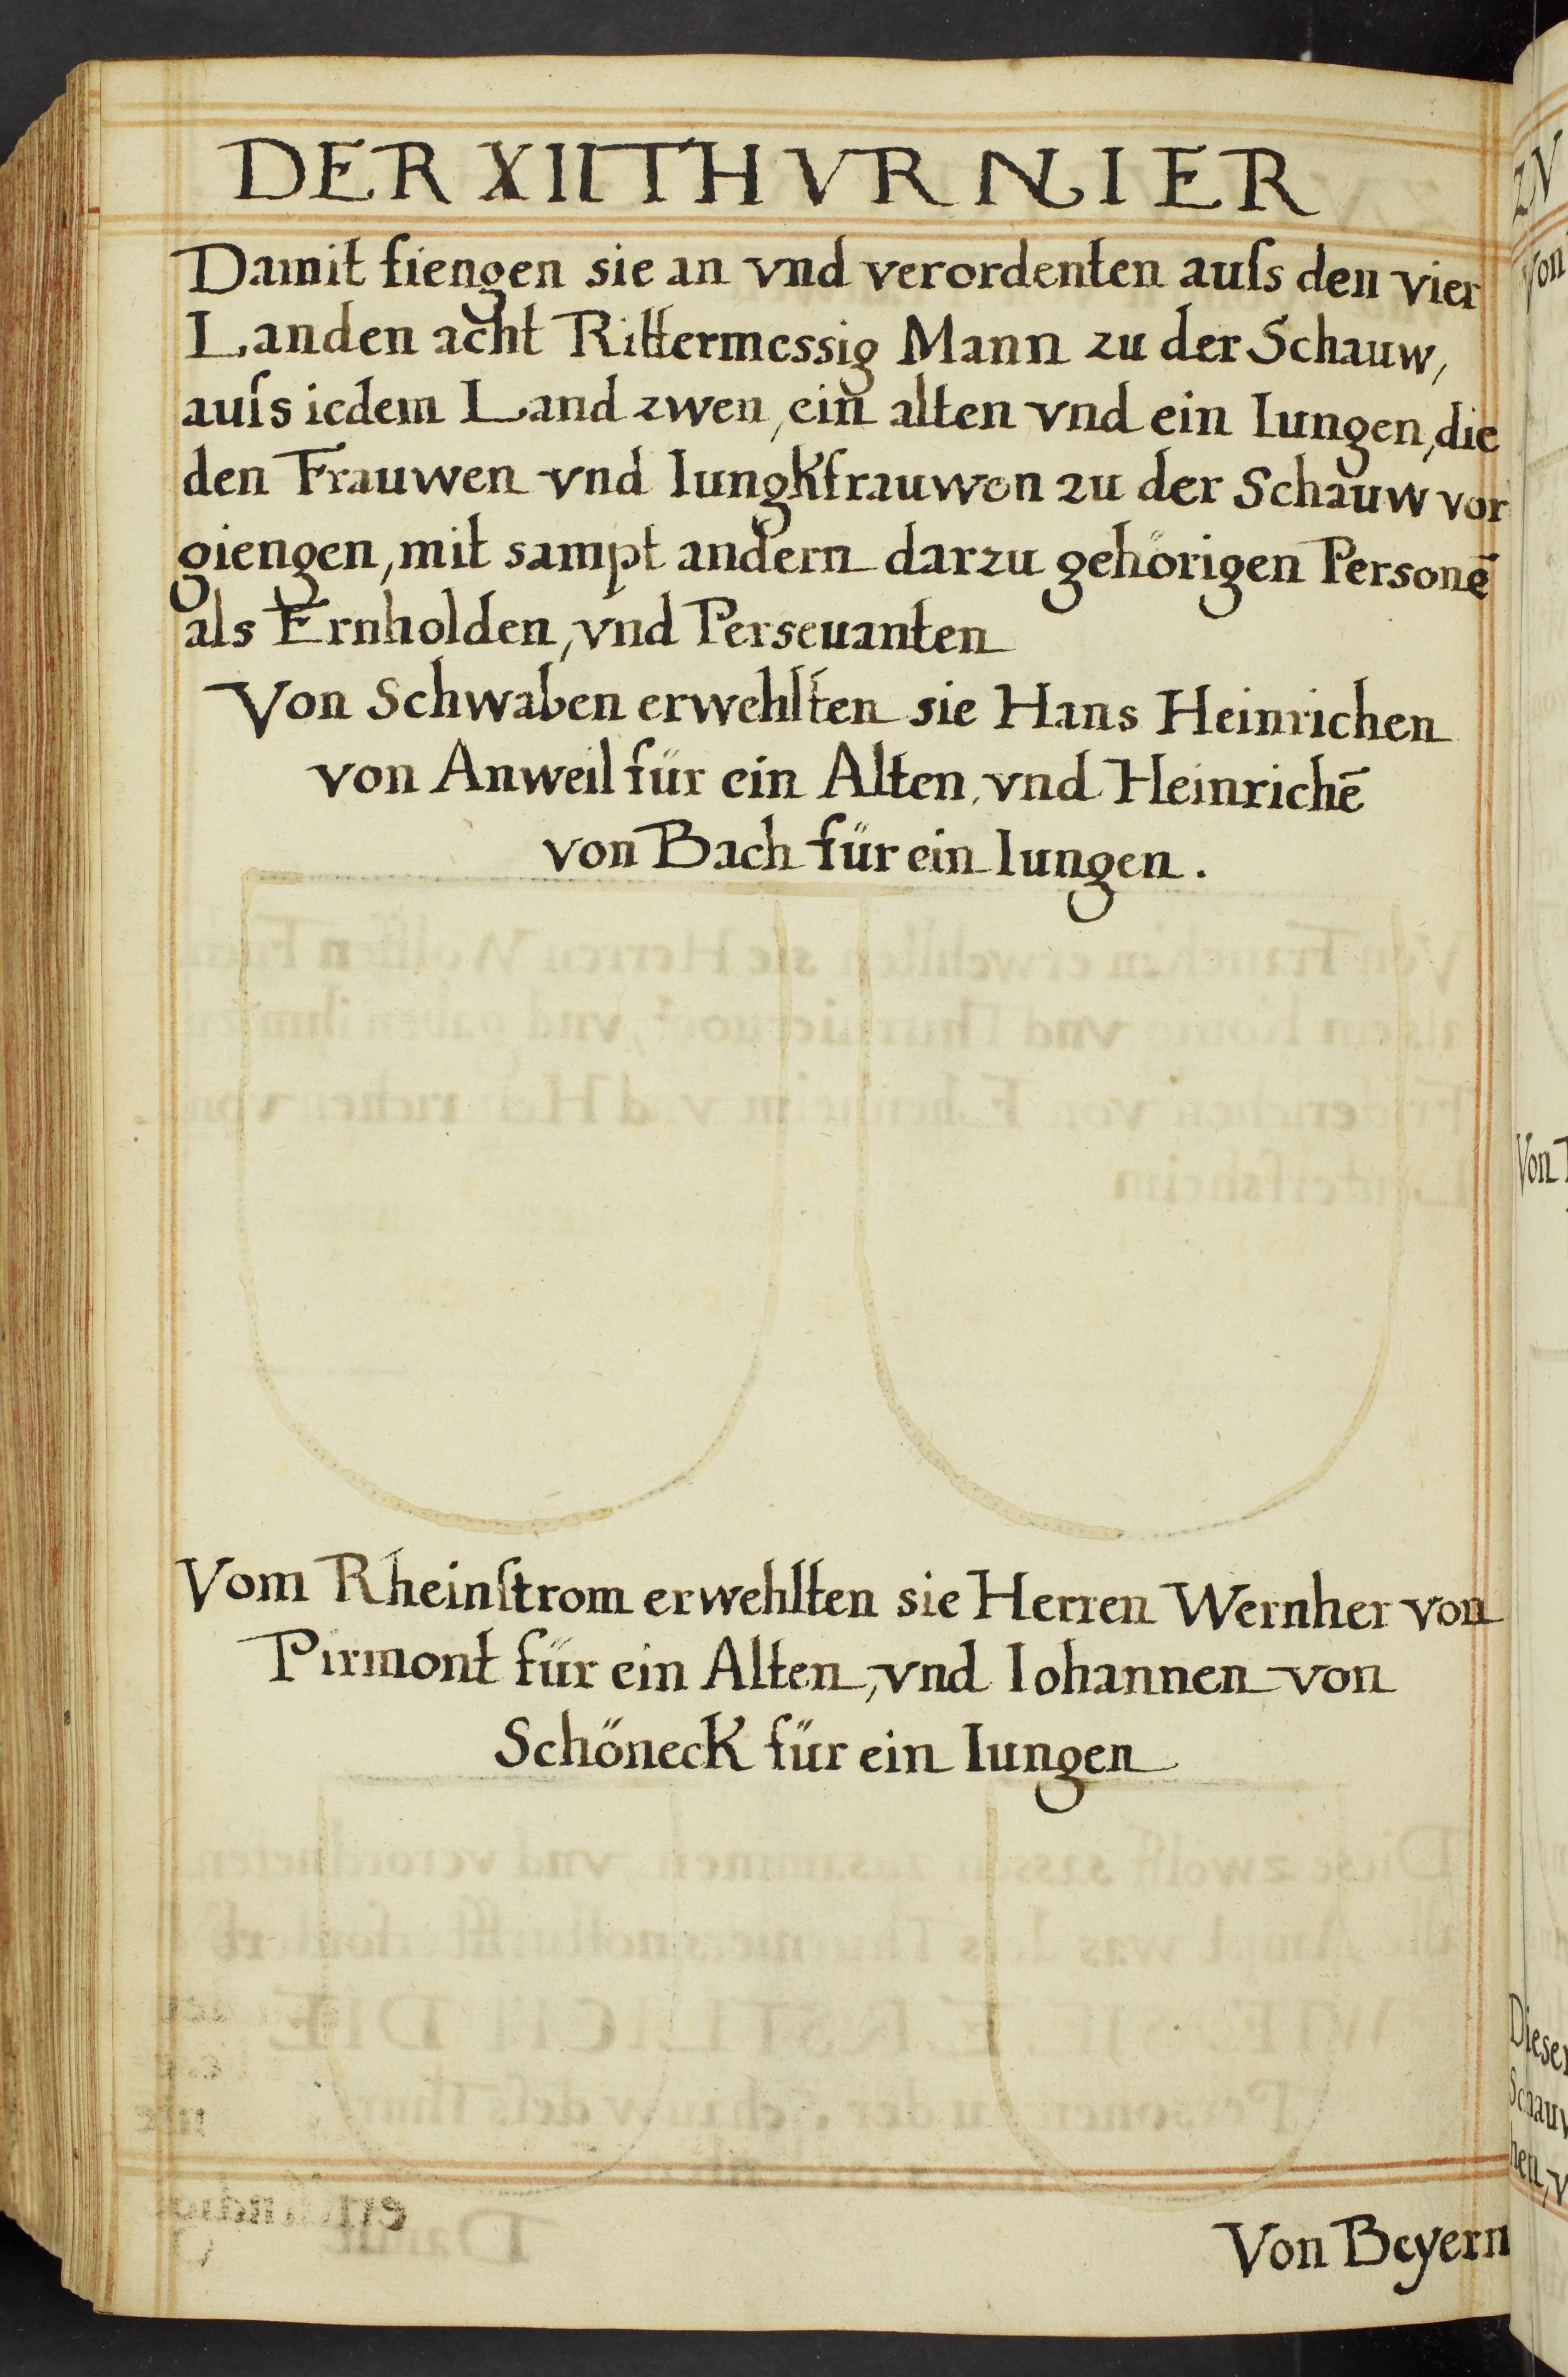 DER XII THVRNIER
Damit fiengen sie an vnd verordenten auſs den vier
Landen acht Rittermessig Mann zu der Schauw,
auſs iedem Land zwen, ein alten vnd ein Iungen, die
den Frauwen vnd Iungkfrauwen zu der Schauw vor
giengen, mit sampt andern darzu gehörigen Personē
als Ernholden, vnd Perseuanten
Von Schwaben erwehlten sie Hans Heinrichen
von Anweil für ein Alten, vnd Heinrichē
von Bach für ein Iungen.
Vom Rheinſtrom erwehlten sie Herren Wernher von
Pirmont für ein Alten, vnd Iohannen von
Schöneck für ein Iungen
Von Beyern